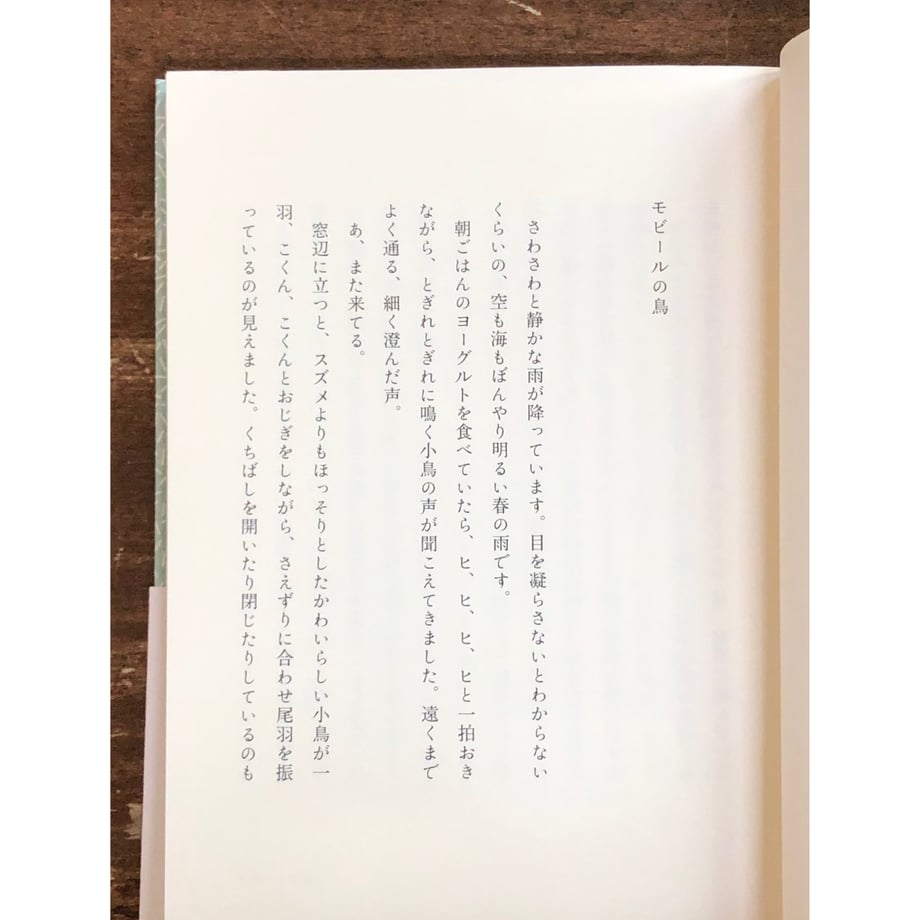 モビールの鳥
さわさわと静かな雨が降っています。目を凝らさないとわからない
くらいの、空も海もぼんやり明るい春の雨です。
朝ごはんのヨーグルトを食べていたら、ヒ、ヒ、ヒ、ヒと一拍おき
ながら、とぎれとぎれに鳴く小鳥の声が聞こえてきました。遠くまで
よく通る、細く澄んだ声。
あ、また来てる。
窓辺に立つと、スズメよりもほっそりとしたかわいらしい小鳥が一
羽、こくん、こくんとおじぎをしながら、さえずりに合わせ尾羽を振
っているのが見えました。くちばしを開いたり閉じたりしているのも